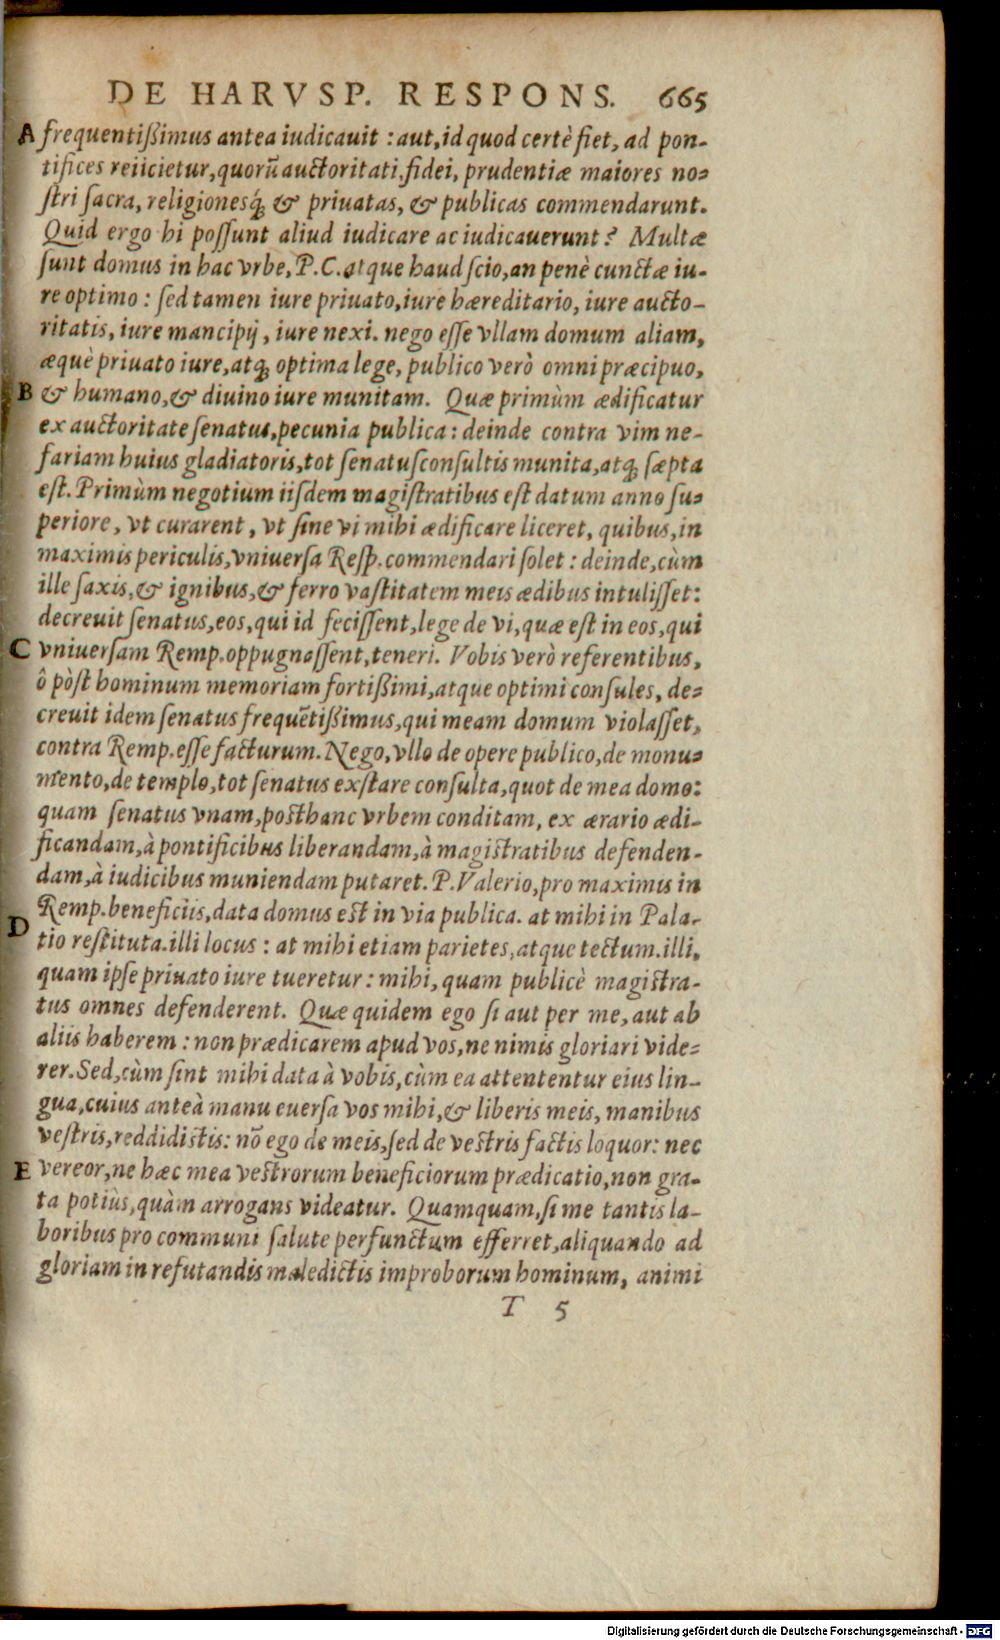 DE HARVSP. RESPONS. 665
A frequentißimus antea iudicauit : aut, id quod certè fiet, ad pon-
tifices reiicietur, quorũ auctoritati, fidei, prudentiæ maiores no-
ſtri ſacra, religionesq́; & priuatas, & publicas commendarunt.
Quid ergo hi poſſunt aliud iudicare ac iudicauerunt? Multæ
ſunt domus in hac vrbe, P. C. atque haud ſcio, an penè cunctæ iu-
re optimo : ſed tamen iure priuato, iure hæreditario, iure aucto-
ritatis, iure mancipij, iure nexi. nego eſſe vllam domum aliam,
æquè priuato iure, atq; optima lege, publico verò omni præcipuo,
B & humano, & diuino iure munitam. Quæ primùm ædificatur
ex auctoritate ſenatus, pecunia publica : deinde contra vim ne-
fariam huius gladiatoris, tot ſenatuſconſultis munita, atq; ſæpta
eſt. Primùm negotium iiſdem magiſtratibus eſt datum anno ſu-
periore, vt curarent, vt ſine vi mihi ædificare liceret, quibus, in
maximis periculis, vniuerſa Reſp. commendari ſolet : deinde, cùm
ille ſaxis, & ignibus, & ferro vaſtitatem meis ædibus intuliſſet:
decreuit ſenatus, eos, qui id feciſſent, lege de vi, quæ eſt in eos, qui
C vniuerſam Remp. oppugnaſſent, teneri. Vobis verò referentibus,
ô pòſt hominum memoriam fortißimi, atque optimi conſules, de-
creuit idem ſenatus frequẽtißimus, qui meam domum violaſſet,
contra Remp. eſſe facturum. Nego, vllo de opere publico, de monu-
mento, de templo, tot ſenatus exſtare conſulta, quot de mea domo:
quam ſenatus vnam, poſt hanc vrbem conditam, ex ærario ædi-
ficandam, à pontificibus liberandam, à magiſtratibus defenden-
dam, à iudicibus muniendam putaret. P. Valerio, pro maximis in
Remp. beneficiis, data domus eſt in via publica. at mihi in Pala-
D tio reſtituta. illi locus : at mihi etiam parietes, atque tectum. illi,
quam ipſe priuato iure tueretur : mihi, quam publicè magiſtra-
tus omnes defenderent. Quæ quidem ego ſi aut per me, aut ab
aliis haberem : non prædicarem apud vos, ne nimis gloriari vide-
rer. Sed, cùm ſint mihi data à vobis, cùm ea attententur eius lin-
gua, cuius anteà manu euerſa vos mihi, & liberis meis, manibus
veſtris, reddidiſtis: nõ ego de meis, ſed de veſtris factis loquor: nec
E vereor, ne hæc mea veſtrorum beneficiorum prædicatio, non gra-
ta potiùs, quàm arrogans videatur. Quamquam, ſi me tantis la-
boribus pro communi ſalute perfunctum efferret, aliquando ad
gloriam in refutandis maledictis improborum hominum, animi
T 5
Digitalisierung gefördert durch die Deutsche Forschungsgemeinschaft - DFG